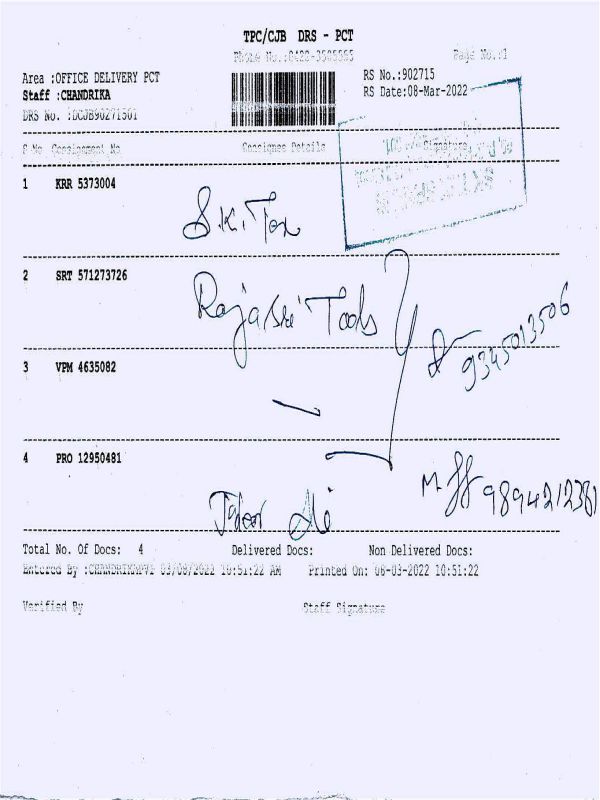 TPC/CJB DRS - PCT
Phone No.:0422-3505555 Page No.:1
Area :OFFICE DELIVERY PCT RS No.:902715
Staff :CHANDRIKA RS Date:08-Mar-2022
DRS No. :DCJB90271501
S No Consignment No Consignee Details Signature
1 KRR 5373004
S.K. Tex
2 SRT 571273726
Rajasri Tools
9345013506
3 VPM 4635082
4 PRO 12950481
M.
Total No. Of Docs: 4 Delivered Docs: Non Delivered Docs:
Entered By :CHANDRIKAPV1 03/08/2022 10:51:22 AM Printed On: 08-03-2022 10:51:22
Verified By Staff Signature